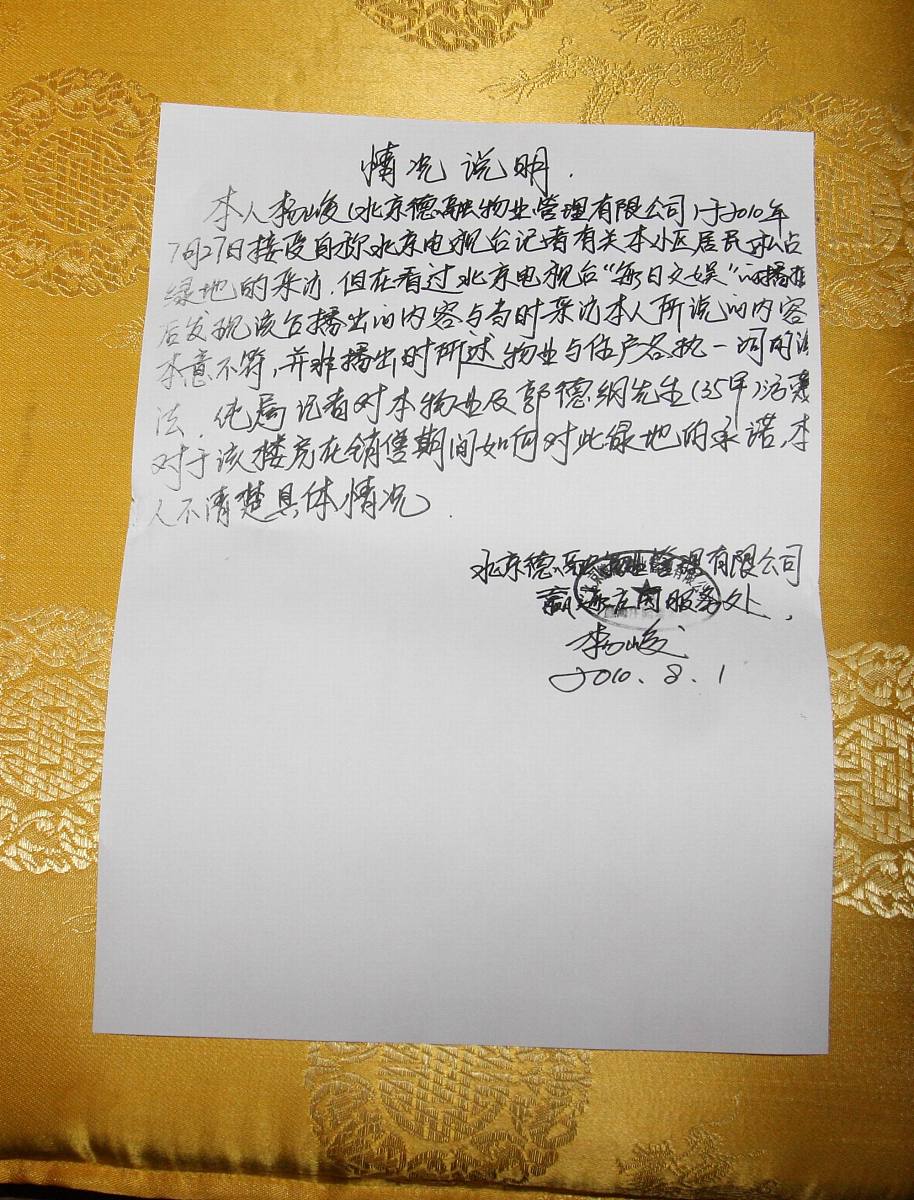 情况说明.
本人杨峻(北京德融物业管理有限公司)于2010年
7月27日接受自称北京电视台记者有关本小区居民私占
绿地的采访,但在看过北京电视台“每日文娱”的播
后发现该台播出的内容与当时采访本人所说的内容
本意不符,并非播出时所述物业与住户各执一词的
法.纯属记者对本物业及郭德纲先生(35甲)污
对于该楼房在销售期间如何对此绿地的承诺,本
人不清楚具体情况.
北京德融物业管理有限公司
庄园服务处,
杨峻
2010.8.1